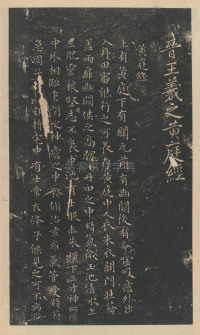 晉王羲之黃庭經
黃庭經
上有黃庭下有關元前有幽闕後有命噓吸廬外出
入丹田審能行之可長存黃庭中人衣朱衣關門壯籥
蓋兩扉幽闕俠之高巍丹田之中精氣微玉池清水上
生肥靈根堅志不衰中池有士服赤朱橫下三寸神所居
中外相距重閉之神廬之中務脩治玄廱氣管受精符
急固子以自持宅中有士常衣絳子能見之可不病